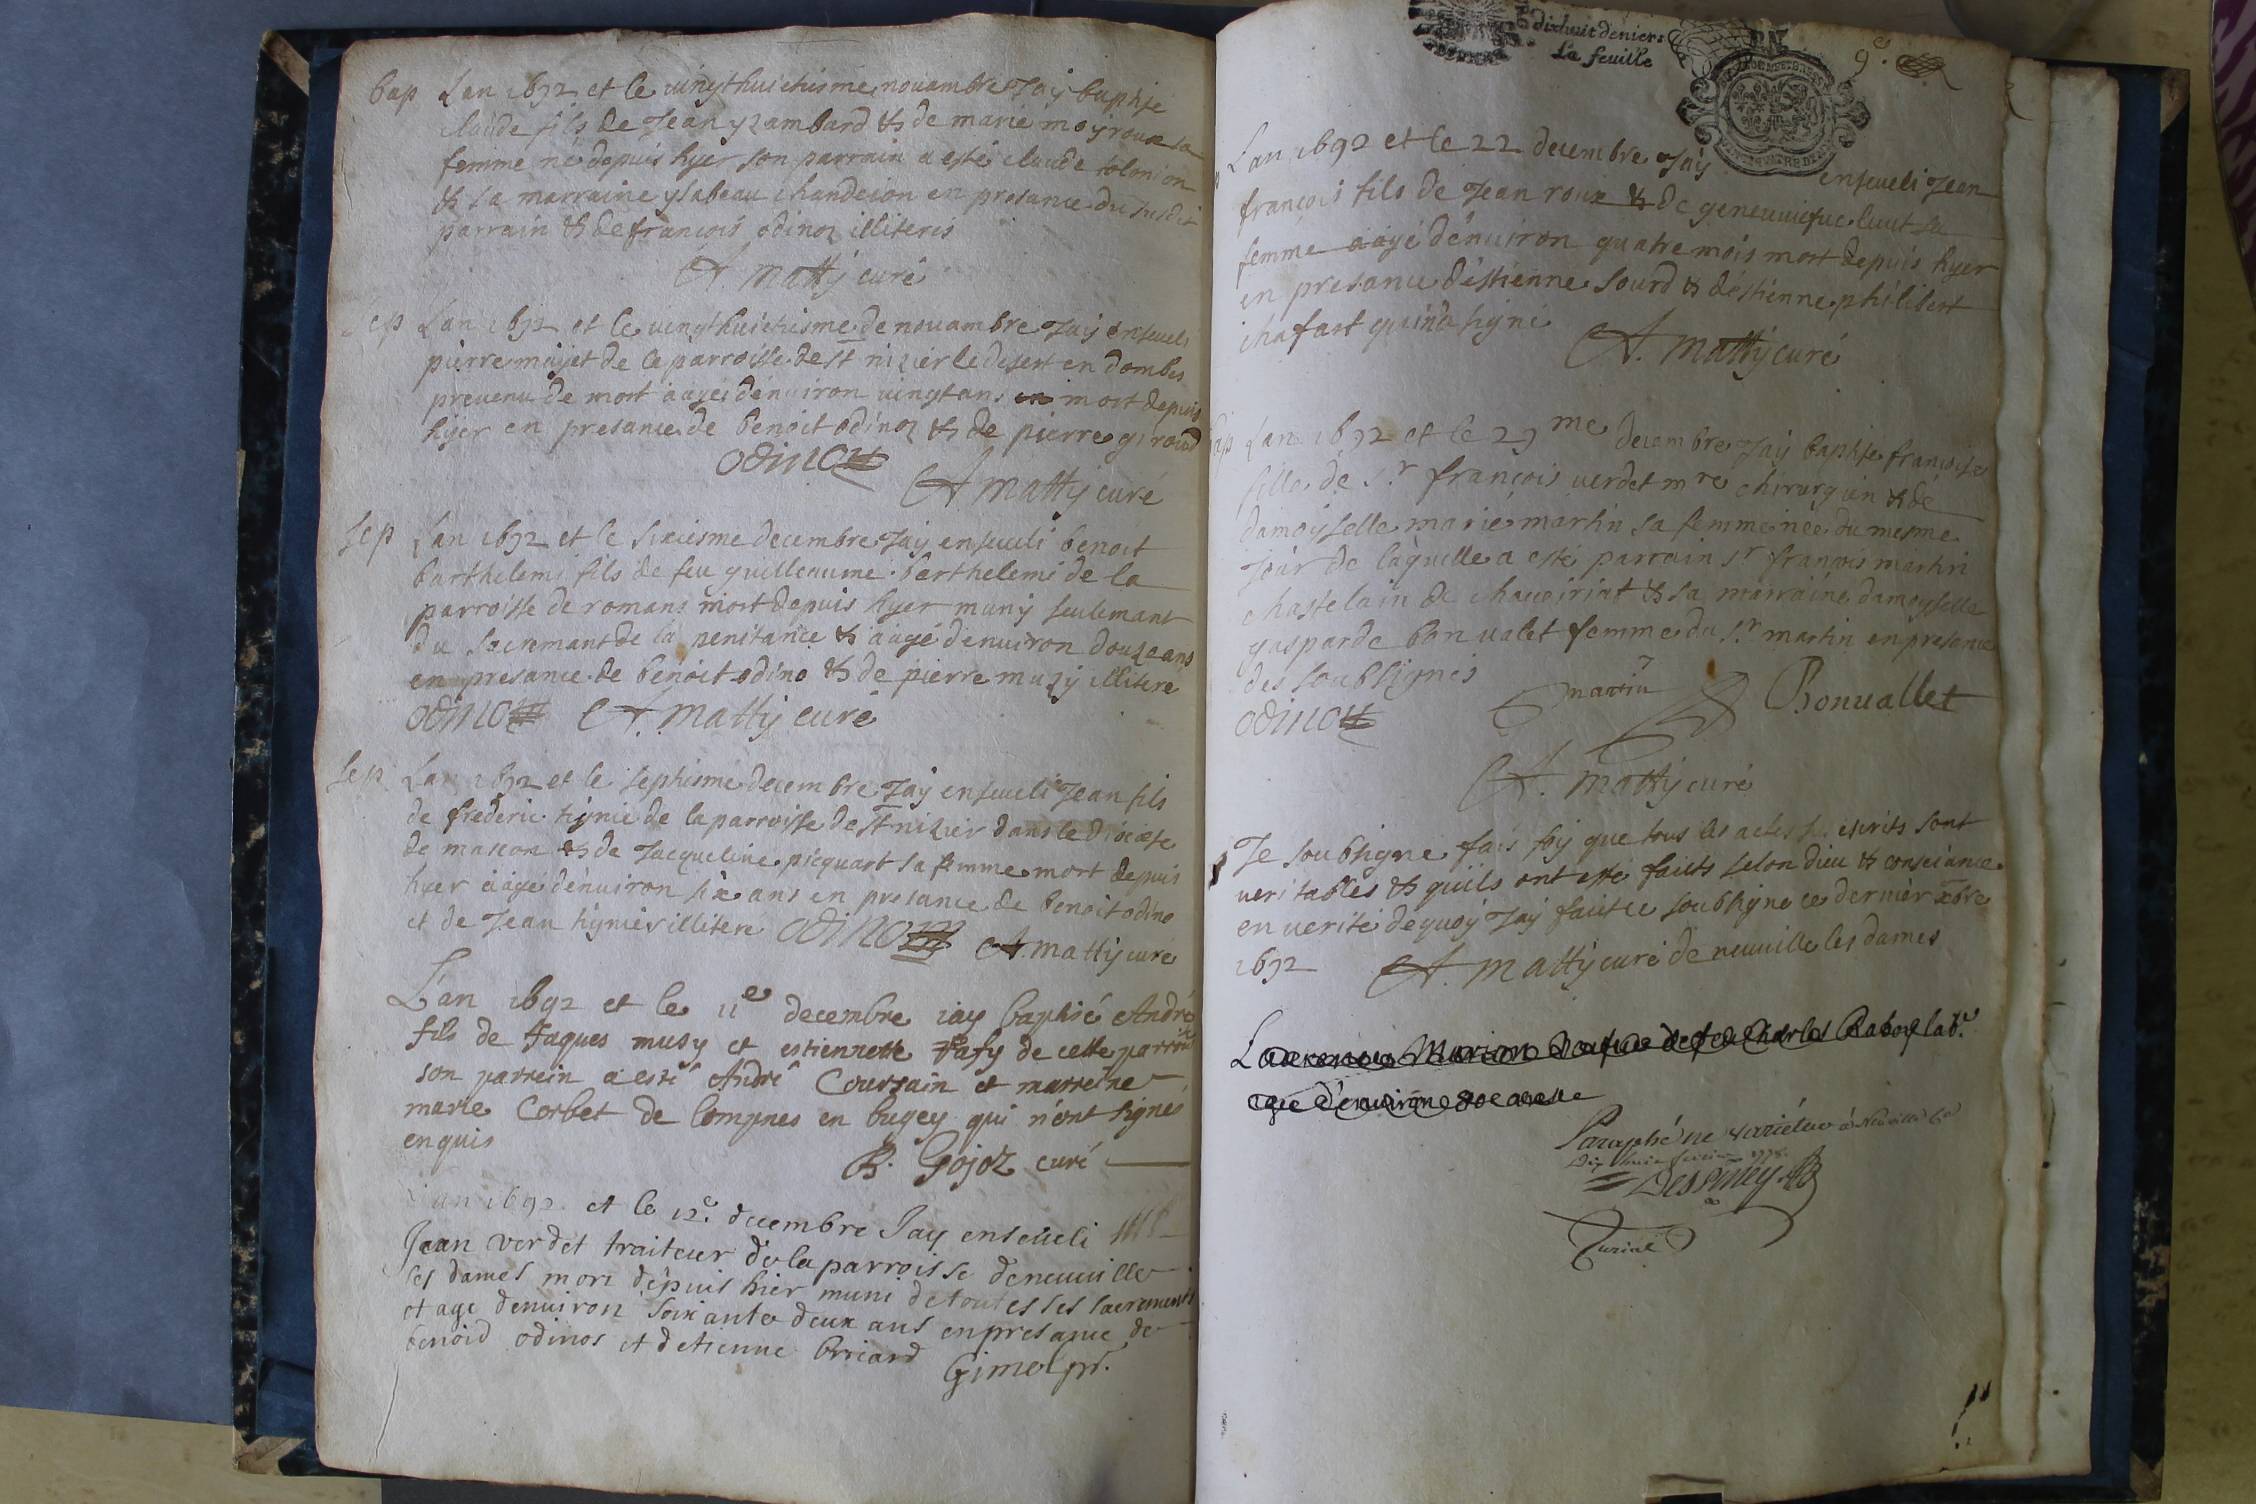 bap Lan 1692 et le vingthuictiesme novambre Jay baptise
claude fils de Jean yzambard & de marie moyroux sa
femme né depuis hyer son parrain a esté claude
& sa marraine ysabeau chandeion en presance du susdit
parrain & de francois odinoz illiteris
A. Mattÿ curé
Sep Lan 1692 et le vengthuictiesme de novambre Jaÿ enseveli
pierre de la parroisse de St nizier le desert en dombes
prevenu de mort aagé denviron vingt ans mort depuis
hyer en presance de benoit odinoz & de pierre giroud
odinoz
A Mattÿ curé
Sep Lan 1692 et le sixiesme decembre Jaÿ enseveli benoit
barthelemi fils de feu guilleaume barthelemi de la
parroisse de romans mort depuis hyer muny seulemant
du sacremant de la penitance & aagé denviron douze ans
en presance de benoit odino & de pierre muzÿ illiteré
odinoz A. Mattÿ curé
Sep Lan 1692 et le septiesme decembre Jaÿ enseveli Jean fils
de frederic de la parroisse de St nizier dans le diocese
de mascon & de Jacqueline picquart sa femme mort depuis
hyer aagé denviron six ans en presance de benoit odino
et de Jean illiteré odinoz A. Mattÿ curé
L'an 1692 et le 11e decembre iay baptisé André
fils de Jaques musy et estiennette de cette parroisse
son parrein a esté André Coursain et marreine
marie Corbet de Compnes en bugey qui n'ont signés
enquis
B. Gojoz curé
L'an 1692 et le 12e. decembre Jay enseveli
Jean verdet traiteur de la parroisse deneuuille
les dames mort depuis hier muni de toutes ses sacrements
et age denviron soixante deux ans enpresance de
benoid odinos et detienne briard
Gimel ptr.
dixhuit deniers
La feuille
9e.
Lan 1692 et le 22 decembre Jaÿ enseveli Jean
françois fils de Jean roux & de genevuiefve luut sa
femme aagé d'environ quatre mois mort depuis hyer
en presance d'estienne sourd & d'estienne philibert
chafart qui n'a signé
A. Mattÿ curé
bap Lan 1692 et le 29me decembre Jaÿ baptise françoise
fille de Sr françois verdet mre chirurgien & de
damoyselle marie martin sa femme née du mesme
jour de laquelle a esté parrain Sr françois martin
chastelain de chaveiriat & sa marraine damoyselle
gasparde bonvalet femme du Sr martin en presance
des soubsignés
odinoz Martin Bonuallet
A. Mattÿ curé
Je soubsigné fais foy que tous les actes su escrits sont
veritables & quils ont esté faicts selon dieu & consciance
en verité dequoÿ Jaÿ faict ce soubsigne ce dernièr xbre
1692 A. Mattÿ curé de neuuille les dames
Marion de feu Charles labr.
agée d'environ
Paraphé ne varietur à Neuville le
Dessiney